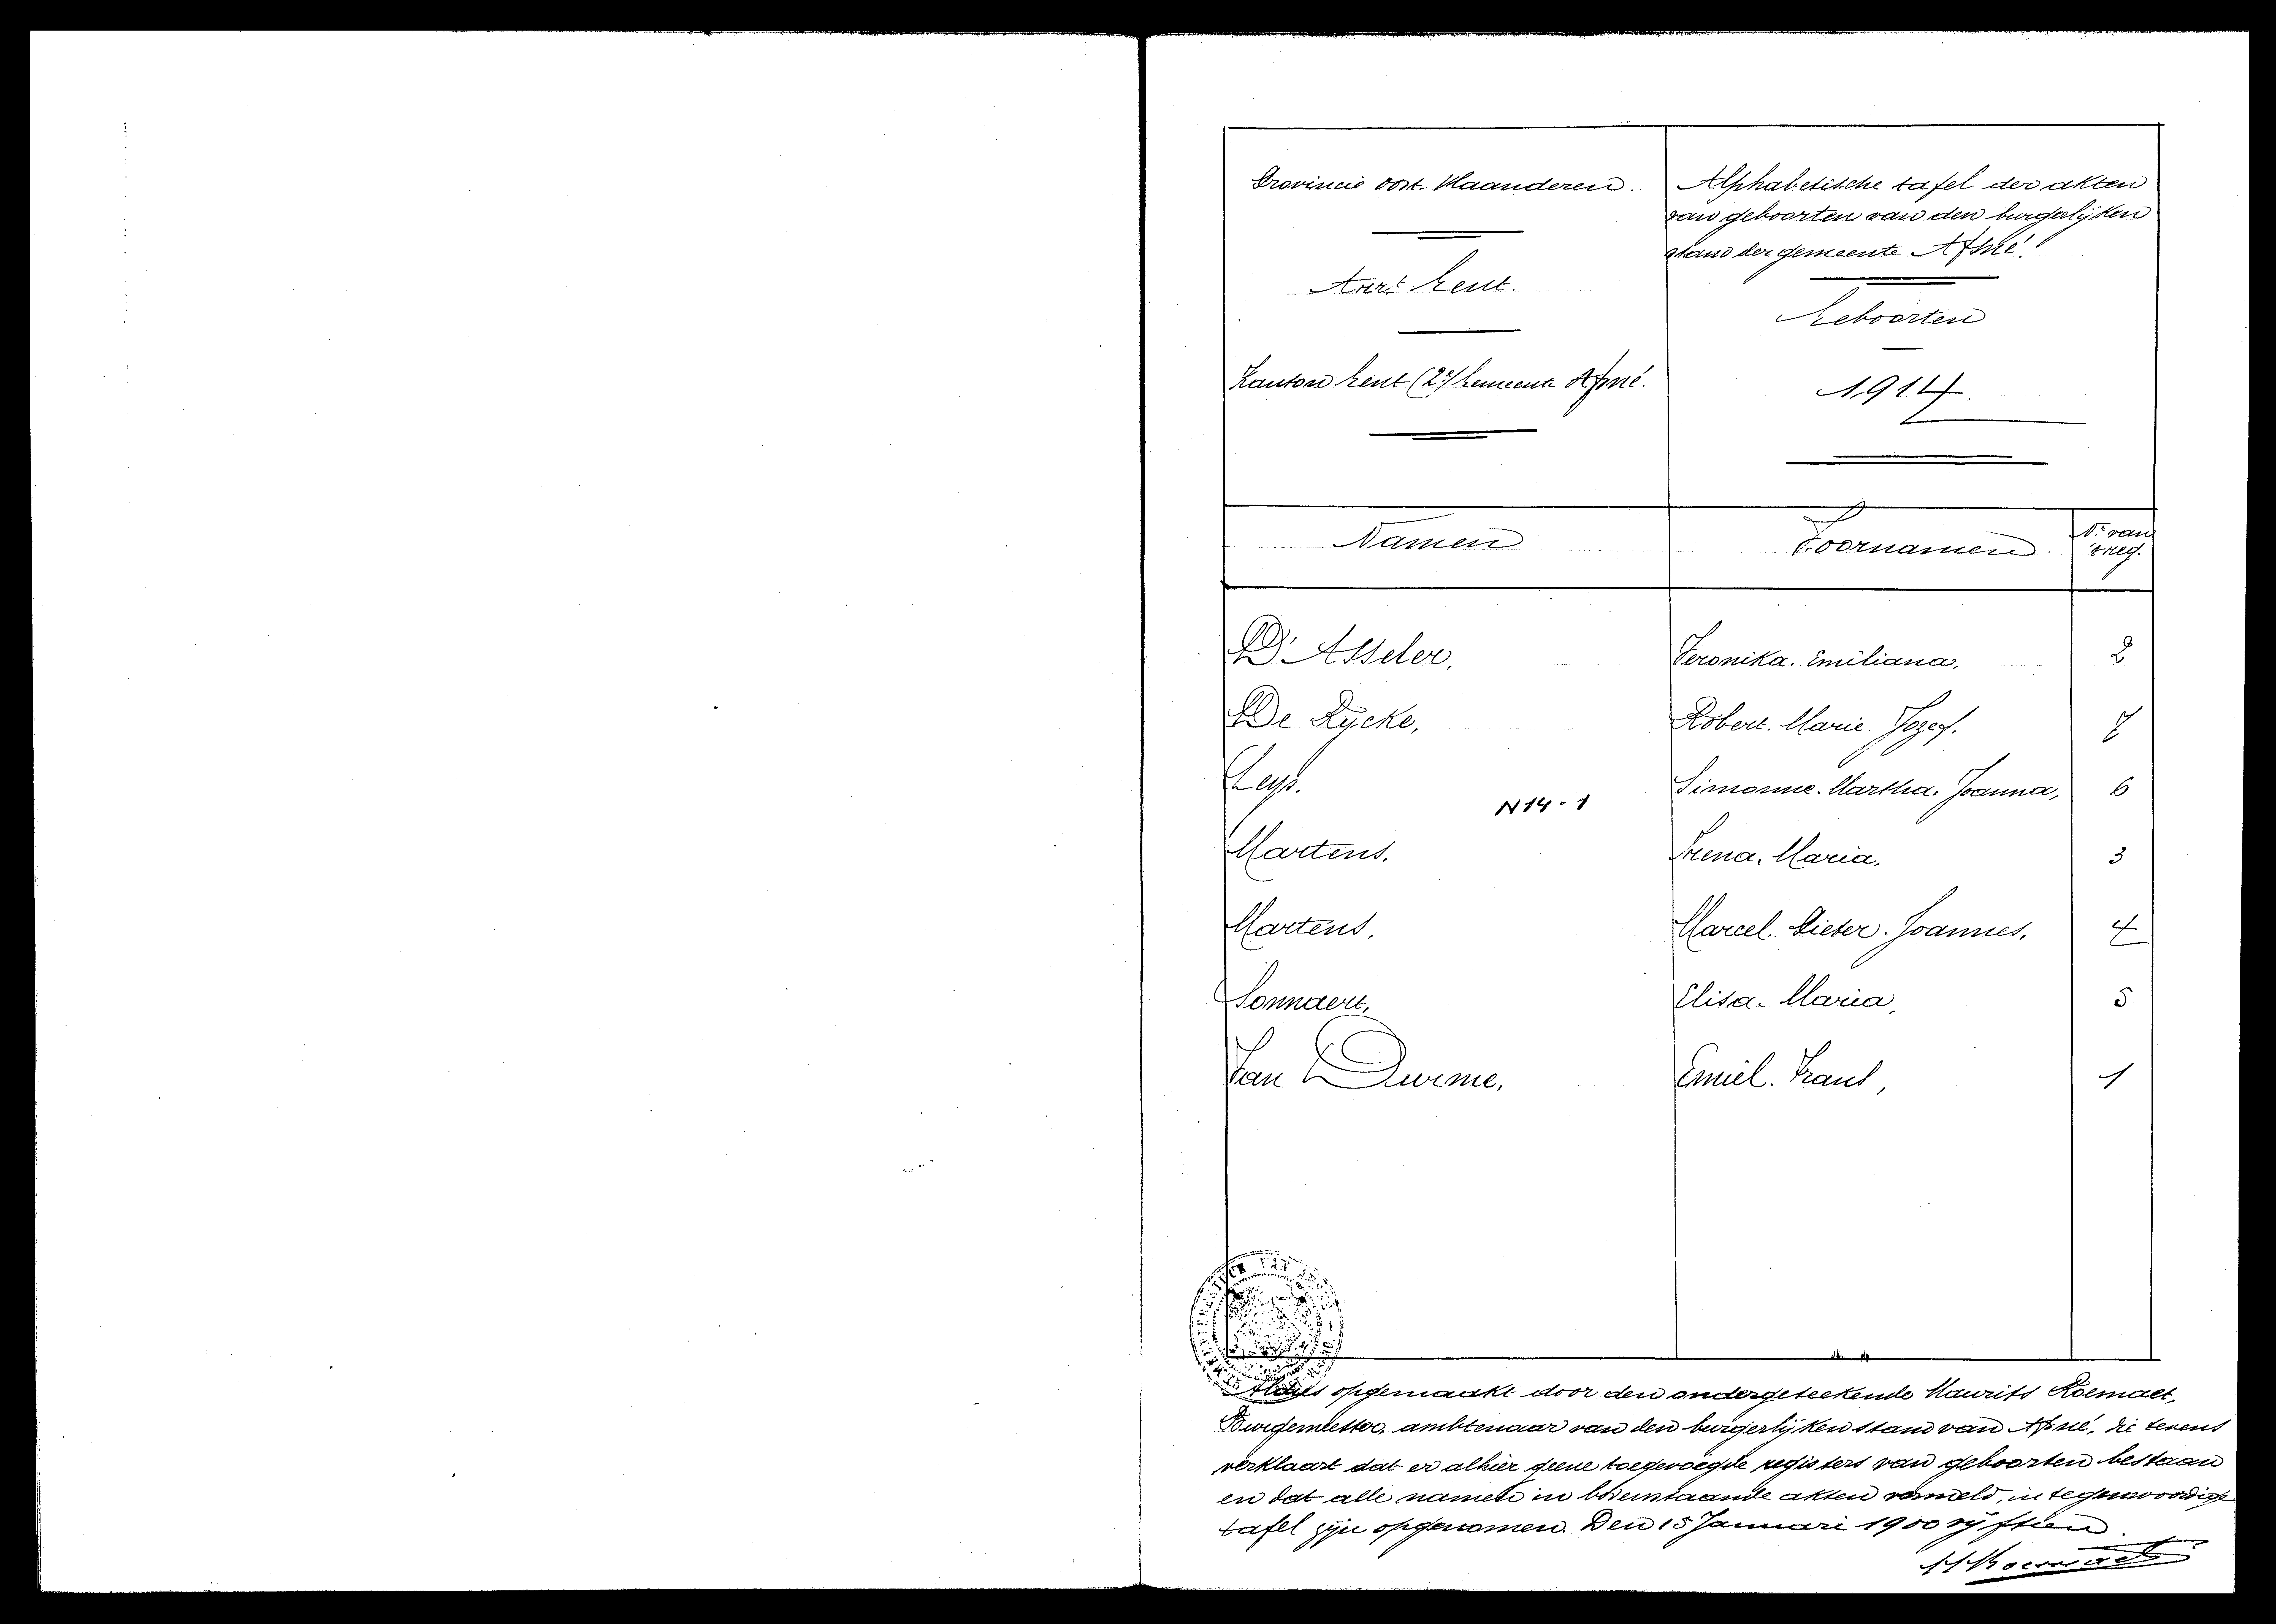 Provincie Oost-Vlaanderen.
Arrt Gent.
Kanton Gent (2e) Gemeente Afsné.
Alphabetische tafel der akten
van geboorten van den burgerlijken
stand der gemeente Afsné.
Geboorten
1914.
Namen Voornamen Nr van 't reg.
D'Asseler, Veronika. Emiliana. 2
De Rycke, Robert. Marie. Jozef. 7
Leys. Simonne. Martha. Joanna, 6
N14-1
Martens. Irena. Maria. 3
Martens. Marcel. Pieter. Joannes. 4
Sonnaert, Elisa-Maria, 5
Van Durme, Emiel. Frans, 1
Aldus opgemaakt door den ondergeteekende Maurits
Burgemeester, ambtenaar van den burgerlijken stand van Afsné, die tevens
verklaart dat er alhier geene toegevoegde registers van geboorten bestaan
en dat alle namen in bovenstaande akten vermeld, in tegenwoordige
tafel zijn opgenomen. Den 15 Januari 1900 vijftien.